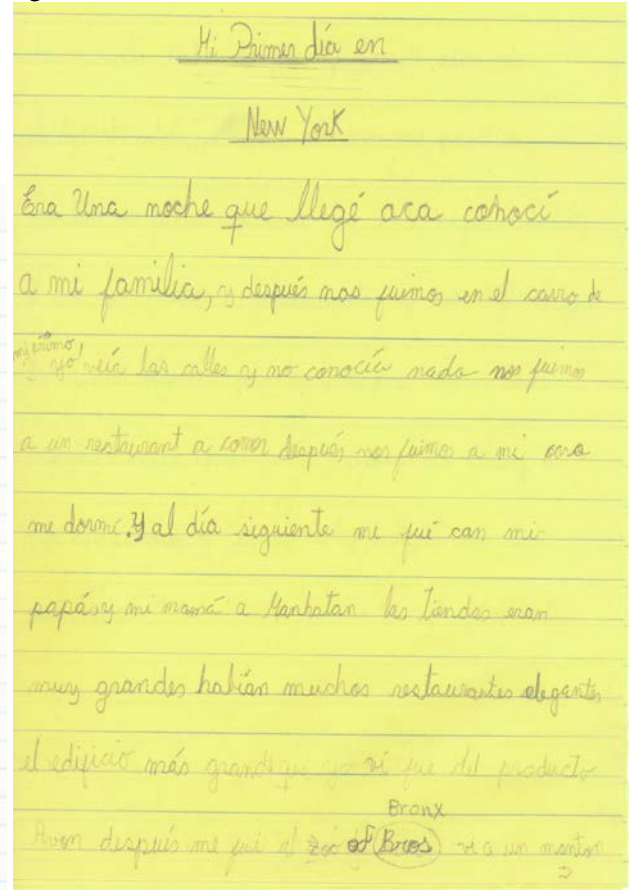 Mi Primer día en
New York
Era Una noche que llegé aca conocí
a mi familia, y después nos fuimos en el carro de
mi primo, yo veía las calles y no conocía nada nos fuimos
a un restaurant a comer después nos fuimos a mi casa
me dormí. Y al día siguiente me fuí con mi
papá y mi mamá a Manhatan las tiendas eran
muy grandes habían muchos restaurantes elegantes
el edificio más grande que yo vi fue del producto
Bronx
Avon después me fui al zoo of Bros vi a un monton